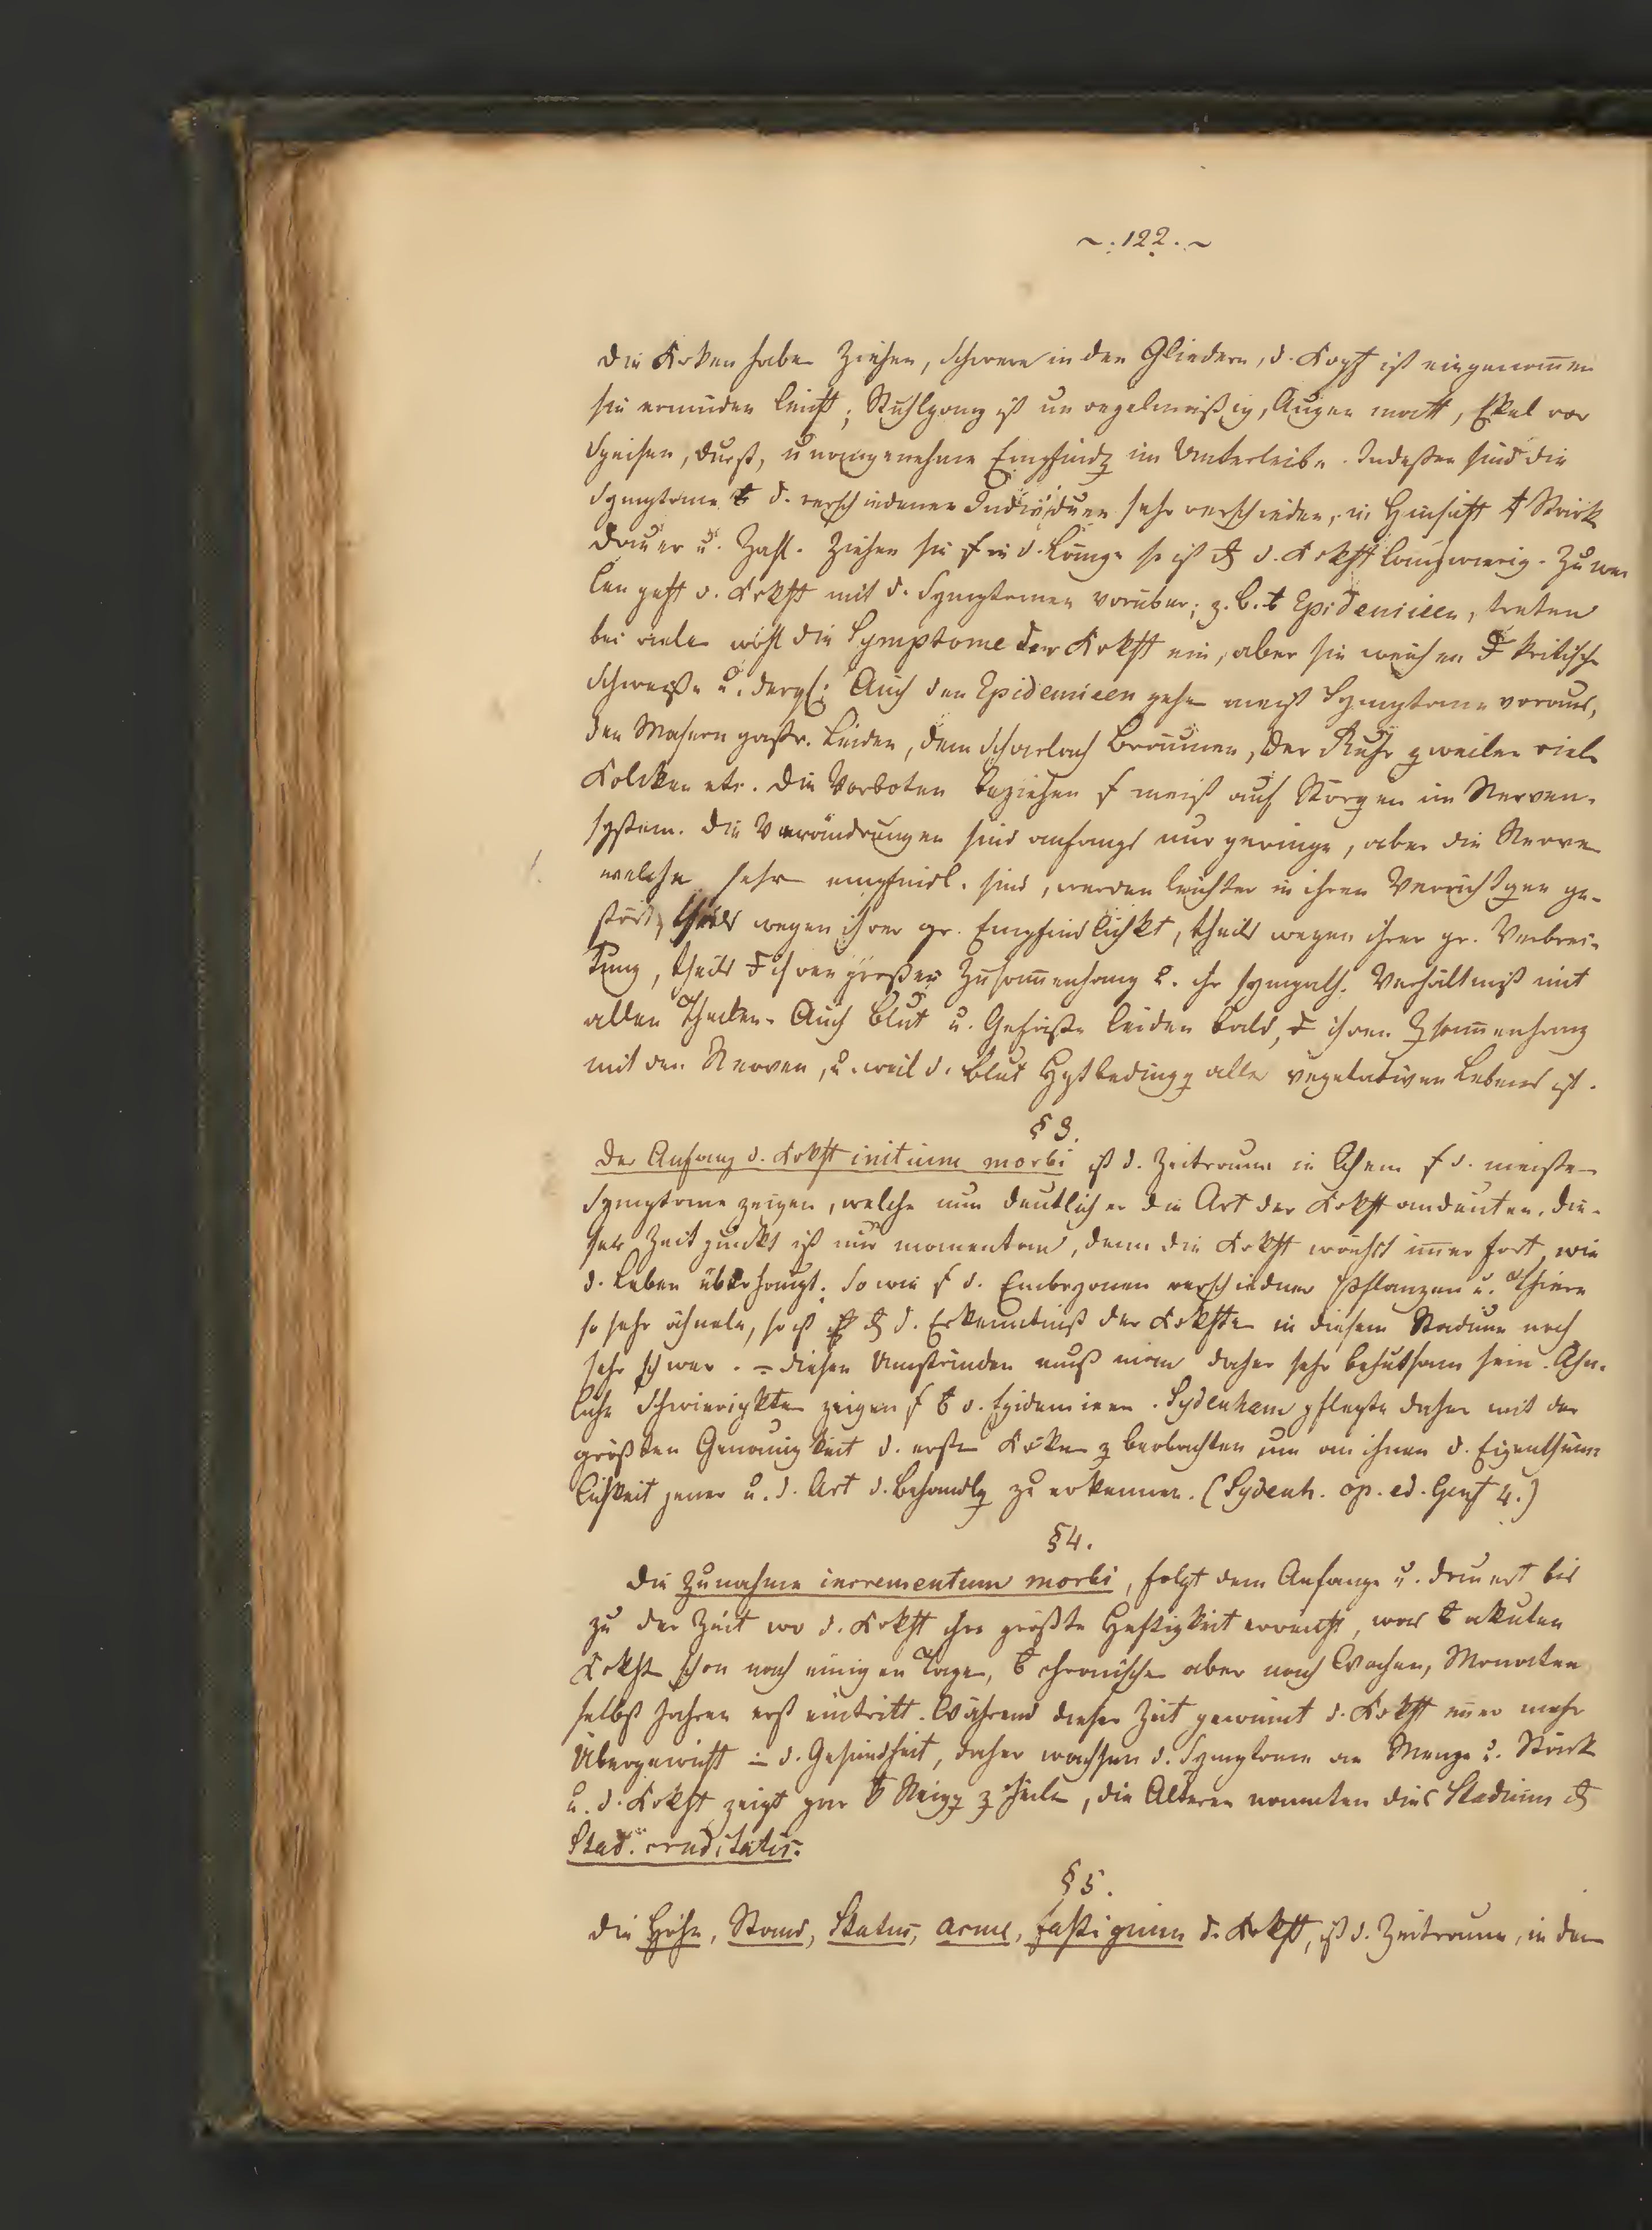 ~. 122. ~
Die Krken haben Ziehen, Schwere in den Gliedern, d. Kopf ist eingenom̄en
sie ermüden leicht; Stuhlgang ist unregelmäßig, Augen matt, Ekel vor
Speisen, Durst, unangenehme Empfindg im Unterleibe. Indeßen sind die
Symptome d. verschiedenen Individuen sehr verschieden, in Hinsicht Stärk
Dauer u. Zahl. Ziehen sie in d. Länge so ist d. Krkht langwierig. Zu wei
len geht d. Krkht mit d. Symptomen vorüber; z. b. Epidemieen, treten
bei viele wohl die Symptome der Krkht ein, aber sie weichen kritische
Schweiße u. dergl: Auch den Epidemieen gehe meist Symptome voraus,
den Masern gastr. Leiden, dem Scharlach Bräunen, der Ruhr zweilen viele
Koliken etc. Die Vorboten beziehen meist auf Störgen im Nerven-
system. Die Verändrungen sind anfangs nur geringe, aber die Nerve
welche sehr empfindl. sind, werden leichter in ihren Verrichtgen ge-
stört, theils wegen ihrer gr. Empfindlichkt, theils wegen ihrer gr. Verbrei-
tung, theils ihren großen Zusam̄enhang u. ihr sympath. Verhältniß mit
allen Theilen. Auch Blut u. Gefäße leiden bald, ihren Zsam̄enhang
mit den Nerven, u. weil d. Blut Hptbedingg alles vegetativen Lebens ist.
§ 3.
Der Anfang d. Krkht initium morbi ist d. Zeitraum in d. meisten
Symptome zeigen, welche nun deutlicher die Art der Krkht andeuten. Die-
ser Zeitpunkt ist nur momentan, denn die Krkht wächst im̄er fort, wie
d. Leben überhaupt. So wie d. Embryonen verschiedner Pflanzen u. Thiere
so sehr ähneln, so ist d. Erkenntniß der Krkhte in diesem Stadium noch
sehr schwer. diesen Umständen muß man daher sehr behutsam sein. Ähn-
liche Schwierigkten zeigen d. Epidemieen. Sydenham pflegte daher mit der
größten Genauigkeit d. erste Krken z beobachten um an ihnen d. Eigenthüm
lichkeit jener u. d. Art d. Behandlg zu erkennen. (Sydenh. op. ed. Genf 4.)
§ 4.
Die Zunahme incrementum morbi, folgt dem Anfange u. dauert bis
zu der Zeit wo d. Krkht ihre größte Heftigkeit erreicht, was akuten
Krkht schon nach einigen Tage, chronische aber nach Wochen, Monaten
selbst Jahren erst eintritt. Während dieser Zeit gewinnt d. Krkht im̄er mehr
Übergewicht d. Gesundheit, daher wachsen d. Symptome an Menge u. Stärk
u. d. Krkht zeigt gar Neigg z Heile, die Älteren nannten dies Stadium
Stad. cruditatis.
§ 5.
Die Höhe, Stand, Status, acme, fastigium d. Krkht, ist d. Zeitraum, in dem